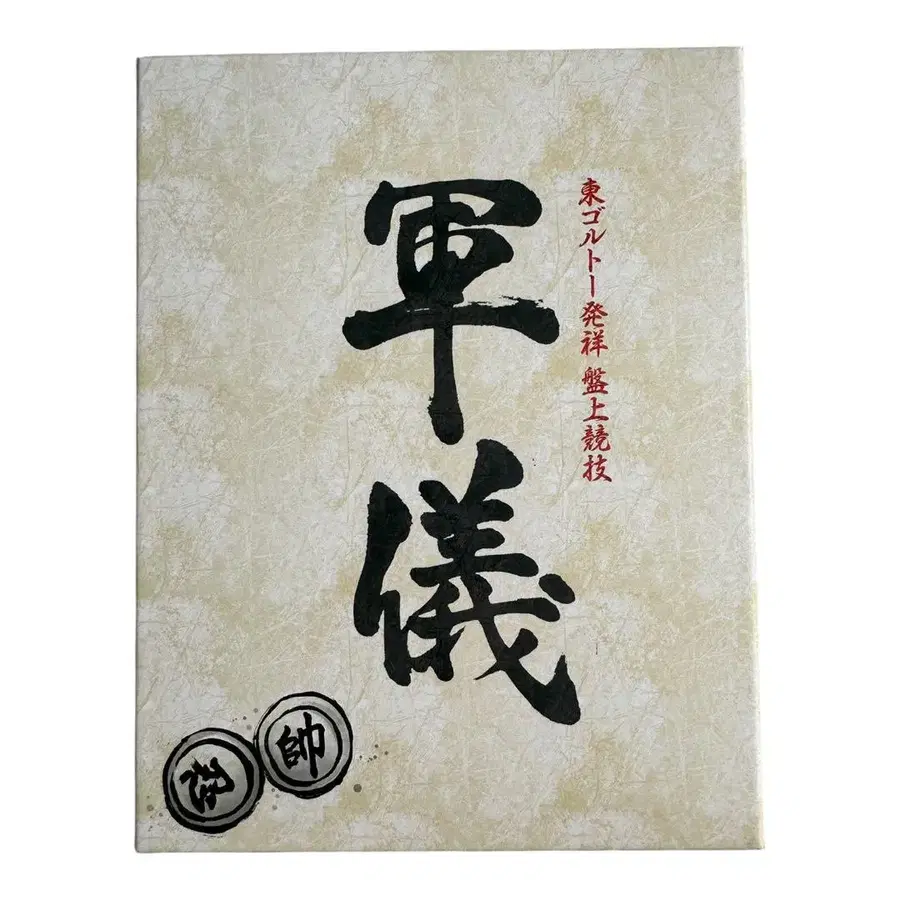 東ゴルトー発祥 盤上競技
軍儀
忍
帥